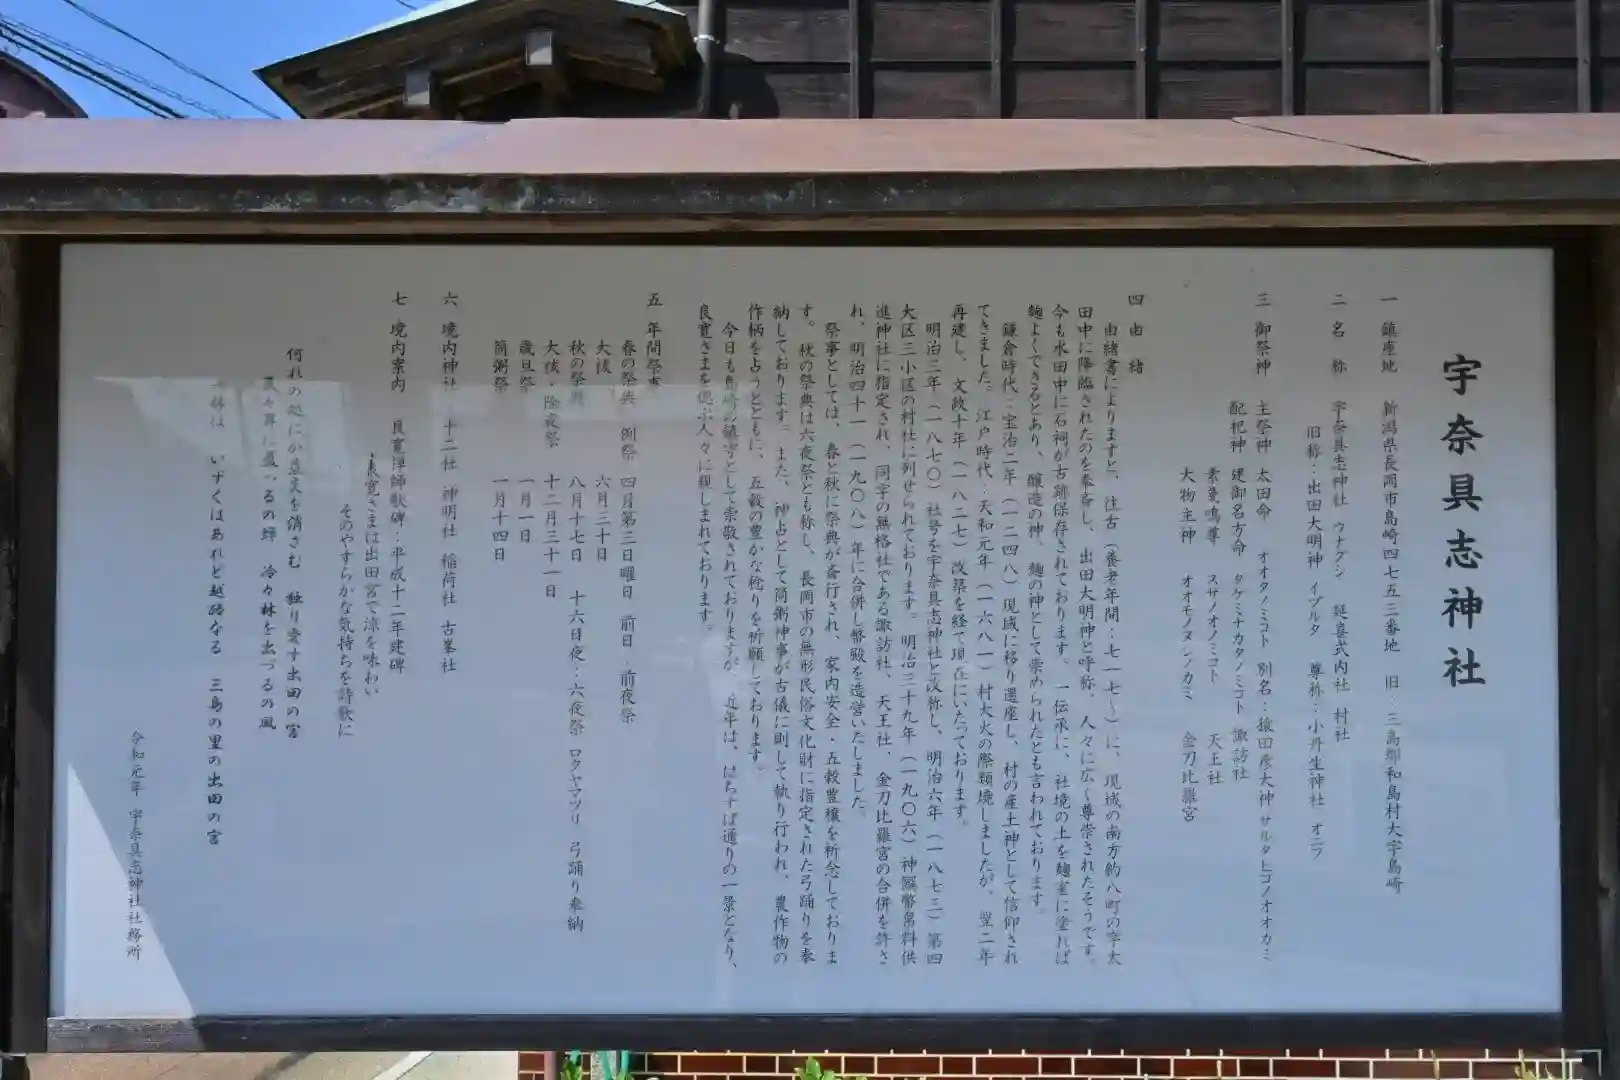 宇奈具志神社
一 鎮座地 新潟県長岡市島崎四七五三番地 旧:三島郡和島村大字島崎
二 名 称 宇奈具志神社 ウナグシ 延喜式内社 村社
旧称:出田大明神 イヅルタ 尊称:小丹生神社 オニフ
三 御祭神 主祭神 太田命 オオタノミコト 別名:猿田彦大神 サルタヒコノオオカミ
配祀神 建御名方命 タケミナカタノミコト 諏訪社
素戔嗚尊 スサノオノミコト 天王社
大物主神 オオモノヌシノカミ 金刀比羅宮
四 由 緒
由緒書によりますと、往古(養老年間:七一七~)に、現域の南方約八町の字太
田中に降臨されたのを奉斎し、出田大明神と呼称、人々に広く尊崇されたそうです。
今も水田中に石祠が古跡保存されております。一伝承に、社境の土を麹室に塗れば
麹よくできるとあり、醸造の神、麹の神として崇められたとも言われております。
鎌倉時代:宝治二年(一二四八)現域に移り遷座し、村の産土神として信仰され
てきました。江戸時代:天和元年(一六八一)村大火の際類焼しましたが、翌二年
再建し、文政十年(一八二七)改築を経て現在にいたっております。
明治三年(一八七〇)社号を宇奈具志神社と改称し、明治六年(一八七三)第四
大区三小区の村社に列せられております。明治三十九年(一九〇六)神饌幣帛料供
進神社に指定され、同字の無格社である諏訪社、天王社、金刀比羅宮の合併を許さ
れ、明治四十一(一九〇八)年に合併し幣殿を造営いたしました。
祭事としては、春と秋に祭典が斎行され、家内安全・五穀豊穣を祈念しておりま
す。秋の祭典は六夜祭とも称し、長岡市の無形民俗文化財に指定された弓踊りを奉
納しております。また、神占として筒粥神事が古儀に則して執り行われ、農作物の
作柄を占うとともに、五穀の豊かな稔りを祈願しております。
今日も島崎の鎮守として崇敬されておりますが、近年は、はちすば通りの一景となり、
良寛さまを偲ぶ人々に親しまれております。
五 年間祭事
春の祭典 例祭 四月第三日曜日 前日:前夜祭
大祓 六月三十日
秋の祭典 八月十七日 十六日夜:六夜祭 ロクヤマツリ 弓踊り奉納
大祓・除夜祭 十二月三十一日
歳旦祭 一月一日
筒粥祭 一月十四日
六 境内神社 十二社 神明社 稲荷社 古峯社
七 境内案内 良寛禅師歌碑:平成十二年建碑
良寛さまは出田宮で涼を味わい
そのやすらかな気持ちを詩歌に
何れの処にか炎天を消さむ 独り愛す出田の宮
るの蝉 冷々林を出づるの風
いずくはあれど越路なる 三島の里の出田の宮
令和元年 宇奈具志神社社務所